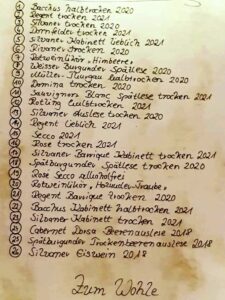 ① Bacchus halbtrocken 2020
② Regent trocken 2021
③ Silvaner trocken 2020
④ Dornfelder trocken 2021
⑤ Silvaner Kabinett lieblich 2021
⑥ Silvaner trocken 2020
⑦ Rotweinlikör "Himbeere"
⑧ Weisser Burgunder Spätlese 2020
⑨ Müller-Thurgau halbtrocken 2020
⑩ Domina trocken 2020
⑪ Sauvignon Blanc Spätlese trocken 2021
⑫ Rotling halbtrocken 2021
⑬ Silvaner Auslese trocken 2020
⑭ Regent lieblich 2021
⑮ Secco 2021
⑯ Rose trocken 2021
⑰ Silvaner Barrique Kabinett trocken 2021
⑱ Spätburgunder Spätlese trocken 2020
⑲ Rosé Secco alkoholfrei
⑳ Rotweinlikör, Traube
㉑ Regent Barrique trocken 2020
㉒ Bacchus Kabinett halbtrocken 2021
㉓ Silvaner Kabinett trocken 2021
㉔ Cabernet Dorsa Beerenauslese 2018
㉕ Spätburgunder Trockenbeerenauslese 2018
㉖ Silvaner Eiswein 2018
Zum Wohle